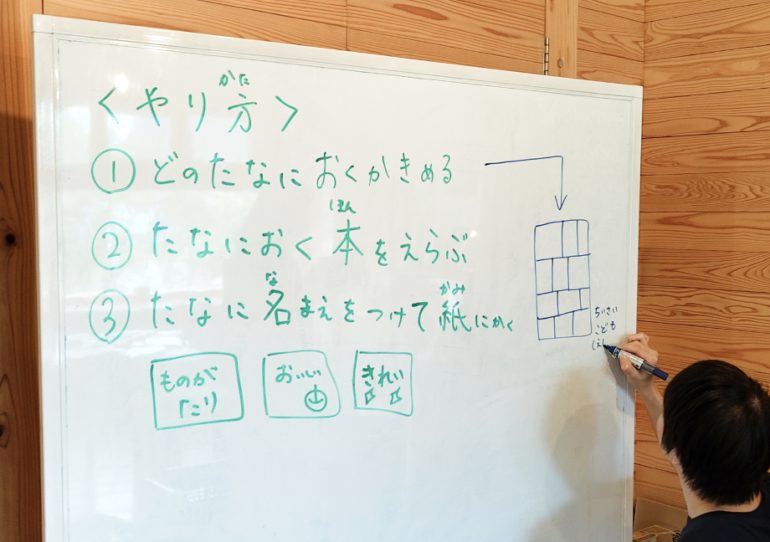 <やり方>
かた
① どのたなにおくかきめる
② たなにおく本をえらぶ
ほん
③ たなに名まえをつけて紙にかく
な
かみ
ものが
たり
おいしい
きれい
ちいさい
こども